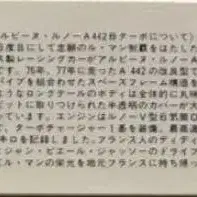 ルピーヌ・ルノーA442Bターボについて)
度目にして念願のル・マン制覇をはたした
製レーシングカーがアルピーヌ・ルノーA
です。76年、77年に走ったA 442の改良型で
パイプを組合わせたスペースフレーム構造を
ようなロングテールのボディは全体的に丸
ピットに取りつけられた半透明のカバーが
っています。エンジンはルノーV型6気筒D
で、ターボチャージャー1基を装備、最高速
キロを記録しました。フランス人のディディ
ジャン・ピエール・ジャッソーのドライブ
ル・マンの栄光を地元フランスに持ち帰っ